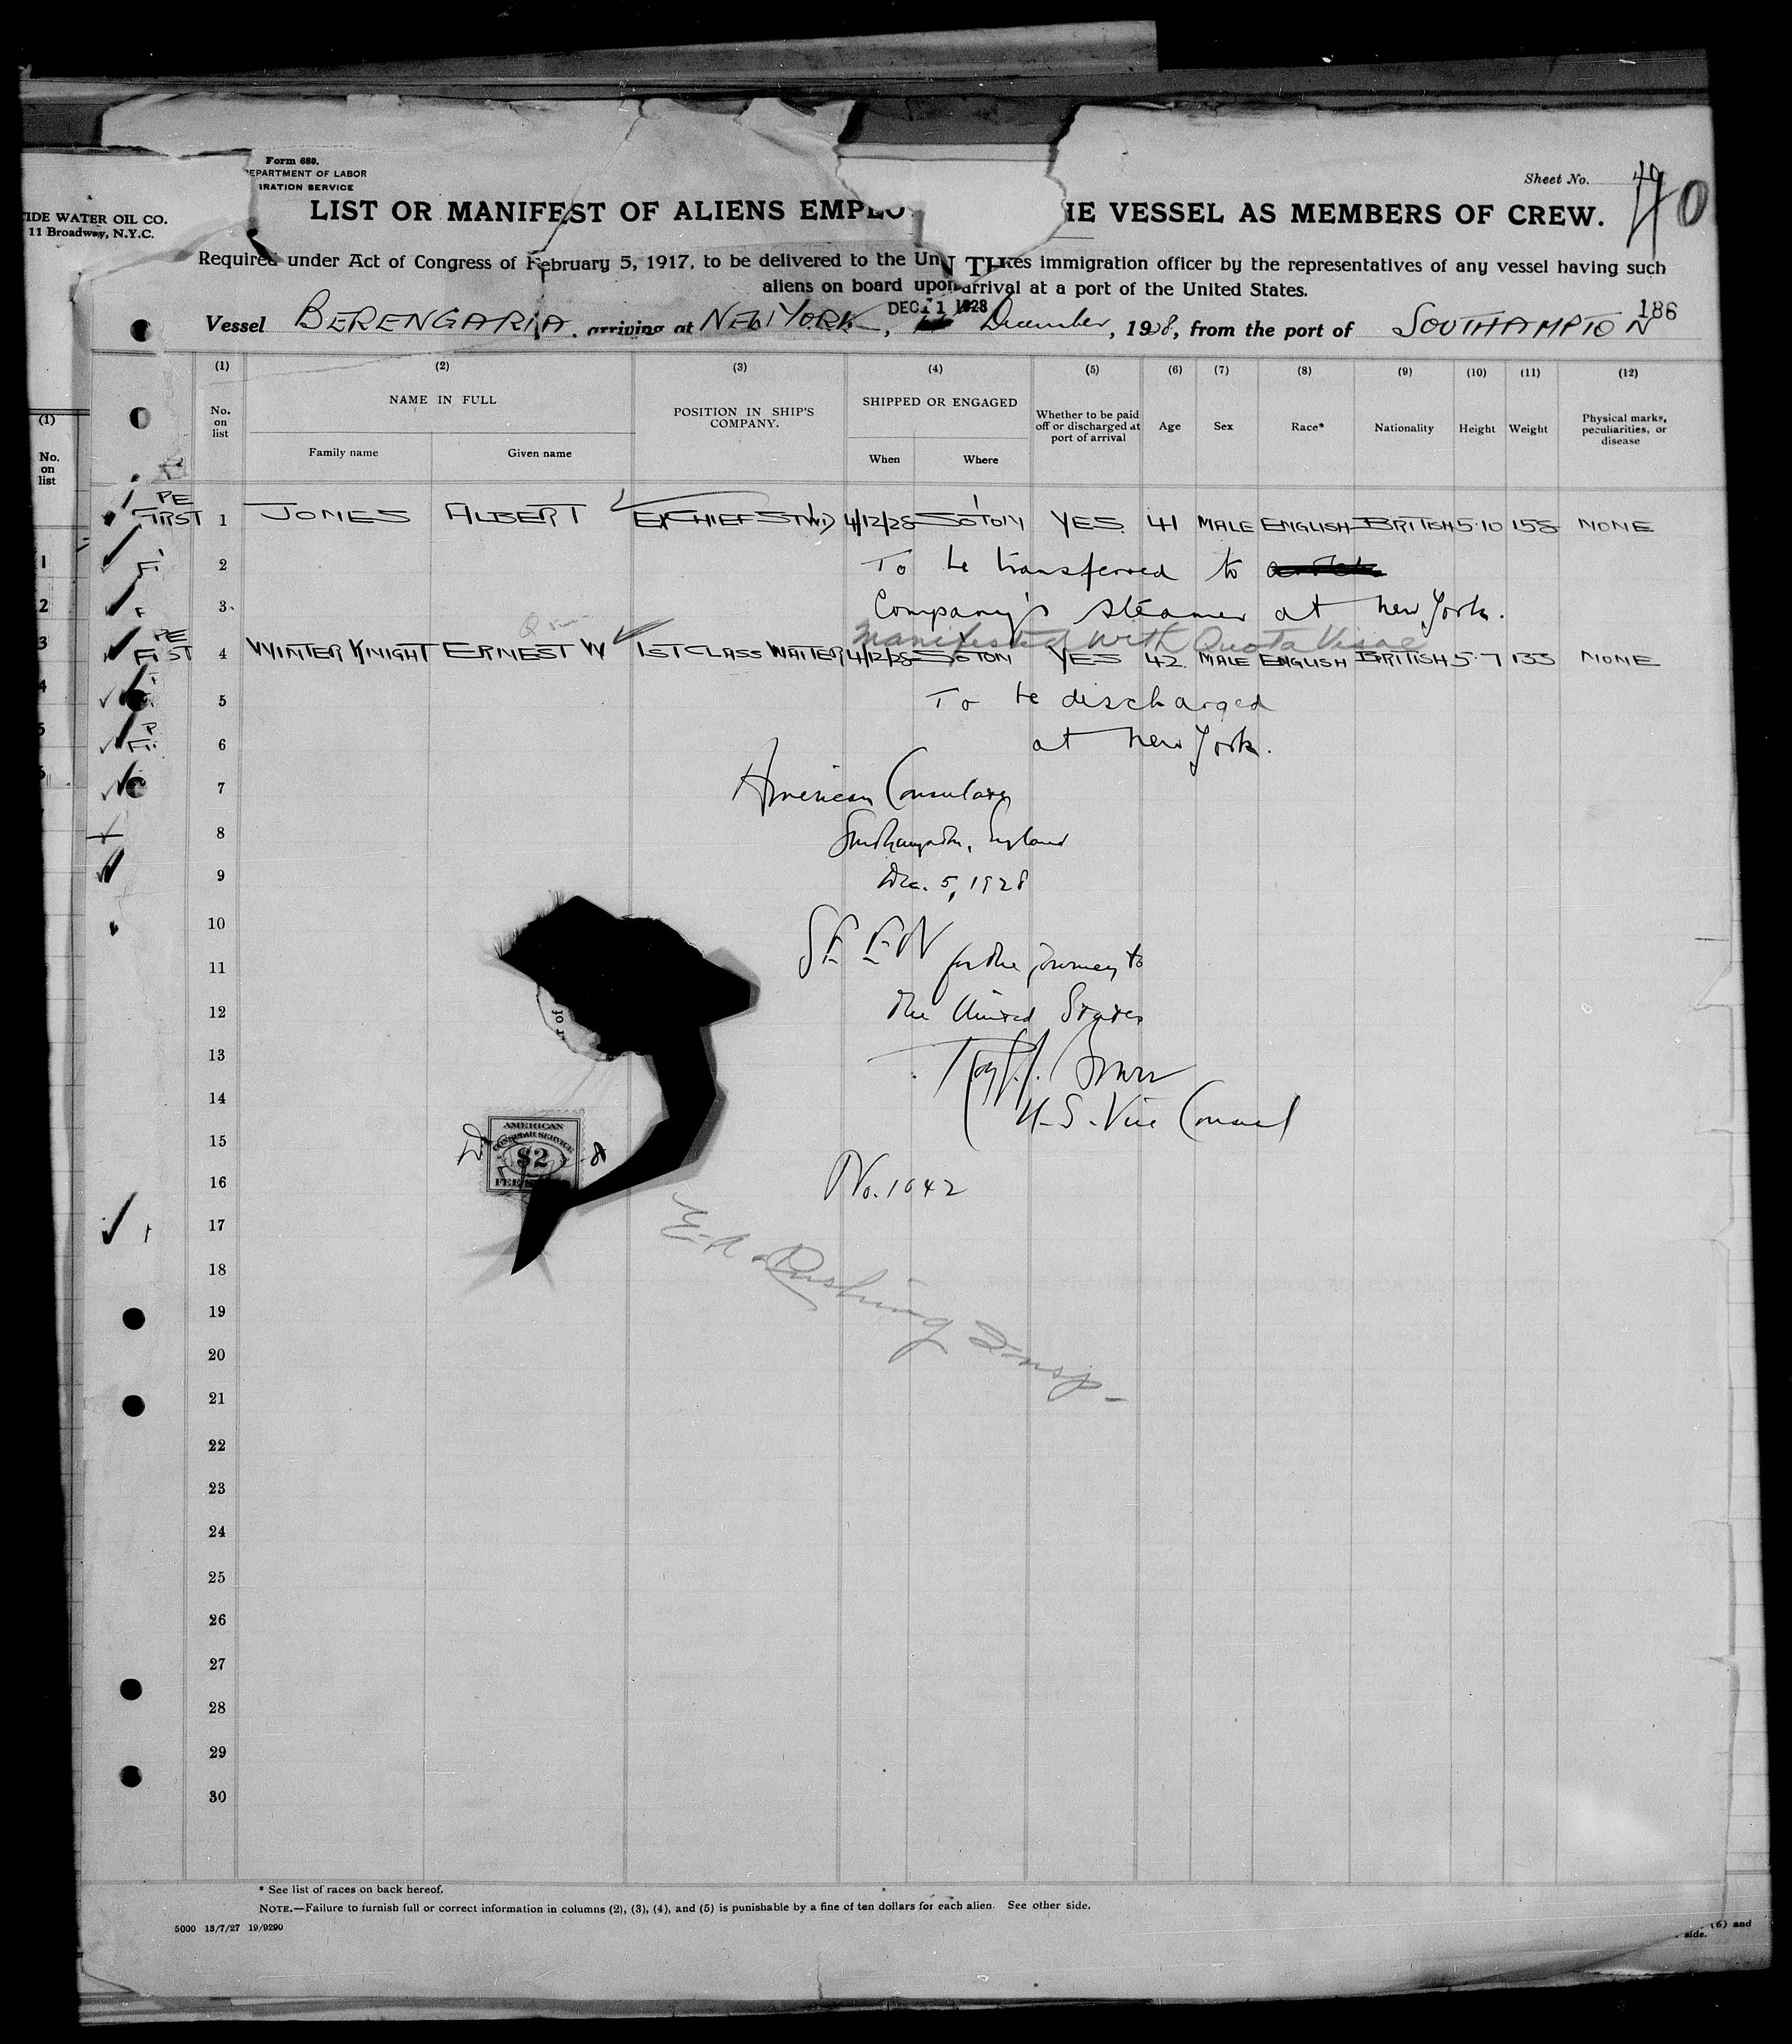 Form 680.
EPARTMENT OF LABOR
IRATION SERVICE
Sheet No. 40
40
TIDE WATER OIL CO.
11 Broadway, N.Y.C.
LIST OR MANIFEST OF ALIENS EMPLO IE VESSEL AS MEMBERS OF CREW.
Required under Act of Congress of February 5, 1917, to be delivered to the Un tes immigration officer by the representatives of any vessel having such
aliens on board upon arrival at a port of the United States.
186
Vessel BERENGARIA, arriving at NEW YORK, DEC 11 1928 December, 1928, from the port of SOUTHAMPTON
(1) (2) (3) (4) (5) (6) (7) (8) (9) (10) (11) (12)
No. on list NAME IN FULL POSITION IN SHIP'S COMPANY. SHIPPED OR ENGAGED Whether to be paid off or discharged at port of arrival Age Sex Race* Nationality Height Weight Physical marks, peculiarities, or disease
Family name Given name When Where
(1)
No. on list
1 JONES ALBERT EXCHIEF STWD 4/12/28 SOTON YES 41 MALE ENGLISH BRITISH 5·10 158 NONE
2 To be transferred to
3 Company's steamer at New York.
Manifested with Quota Visae
4 WINTER KNIGHT ERNEST W 1ST CLASS WAITER 4/12/28 SOTON YES 42 MALE ENGLISH BRITISH 5·7 133 NONE
5 To be discharged
6 at New York.
7 American Consulate
8 Southampton, England
9 Dec. 5, 1928
10 SEEN for the journey to
11
12 the United States
13
14 U.S. Vice Consul
15
AMERICAN
CONSULAR SERVICE
$2
FEE
16 No. 1042
17
E. A. Rushing Insp.
18
19
20
21
22
23
24
25
26
27
28
29
30
* See list of races on back hereof.
NOTE.—Failure to furnish full or correct information in columns (2), (3), (4), and (5) is punishable by a fine of ten dollars for each alien. See other side.
5000 13/7/27 19/9290
(6) and
side.